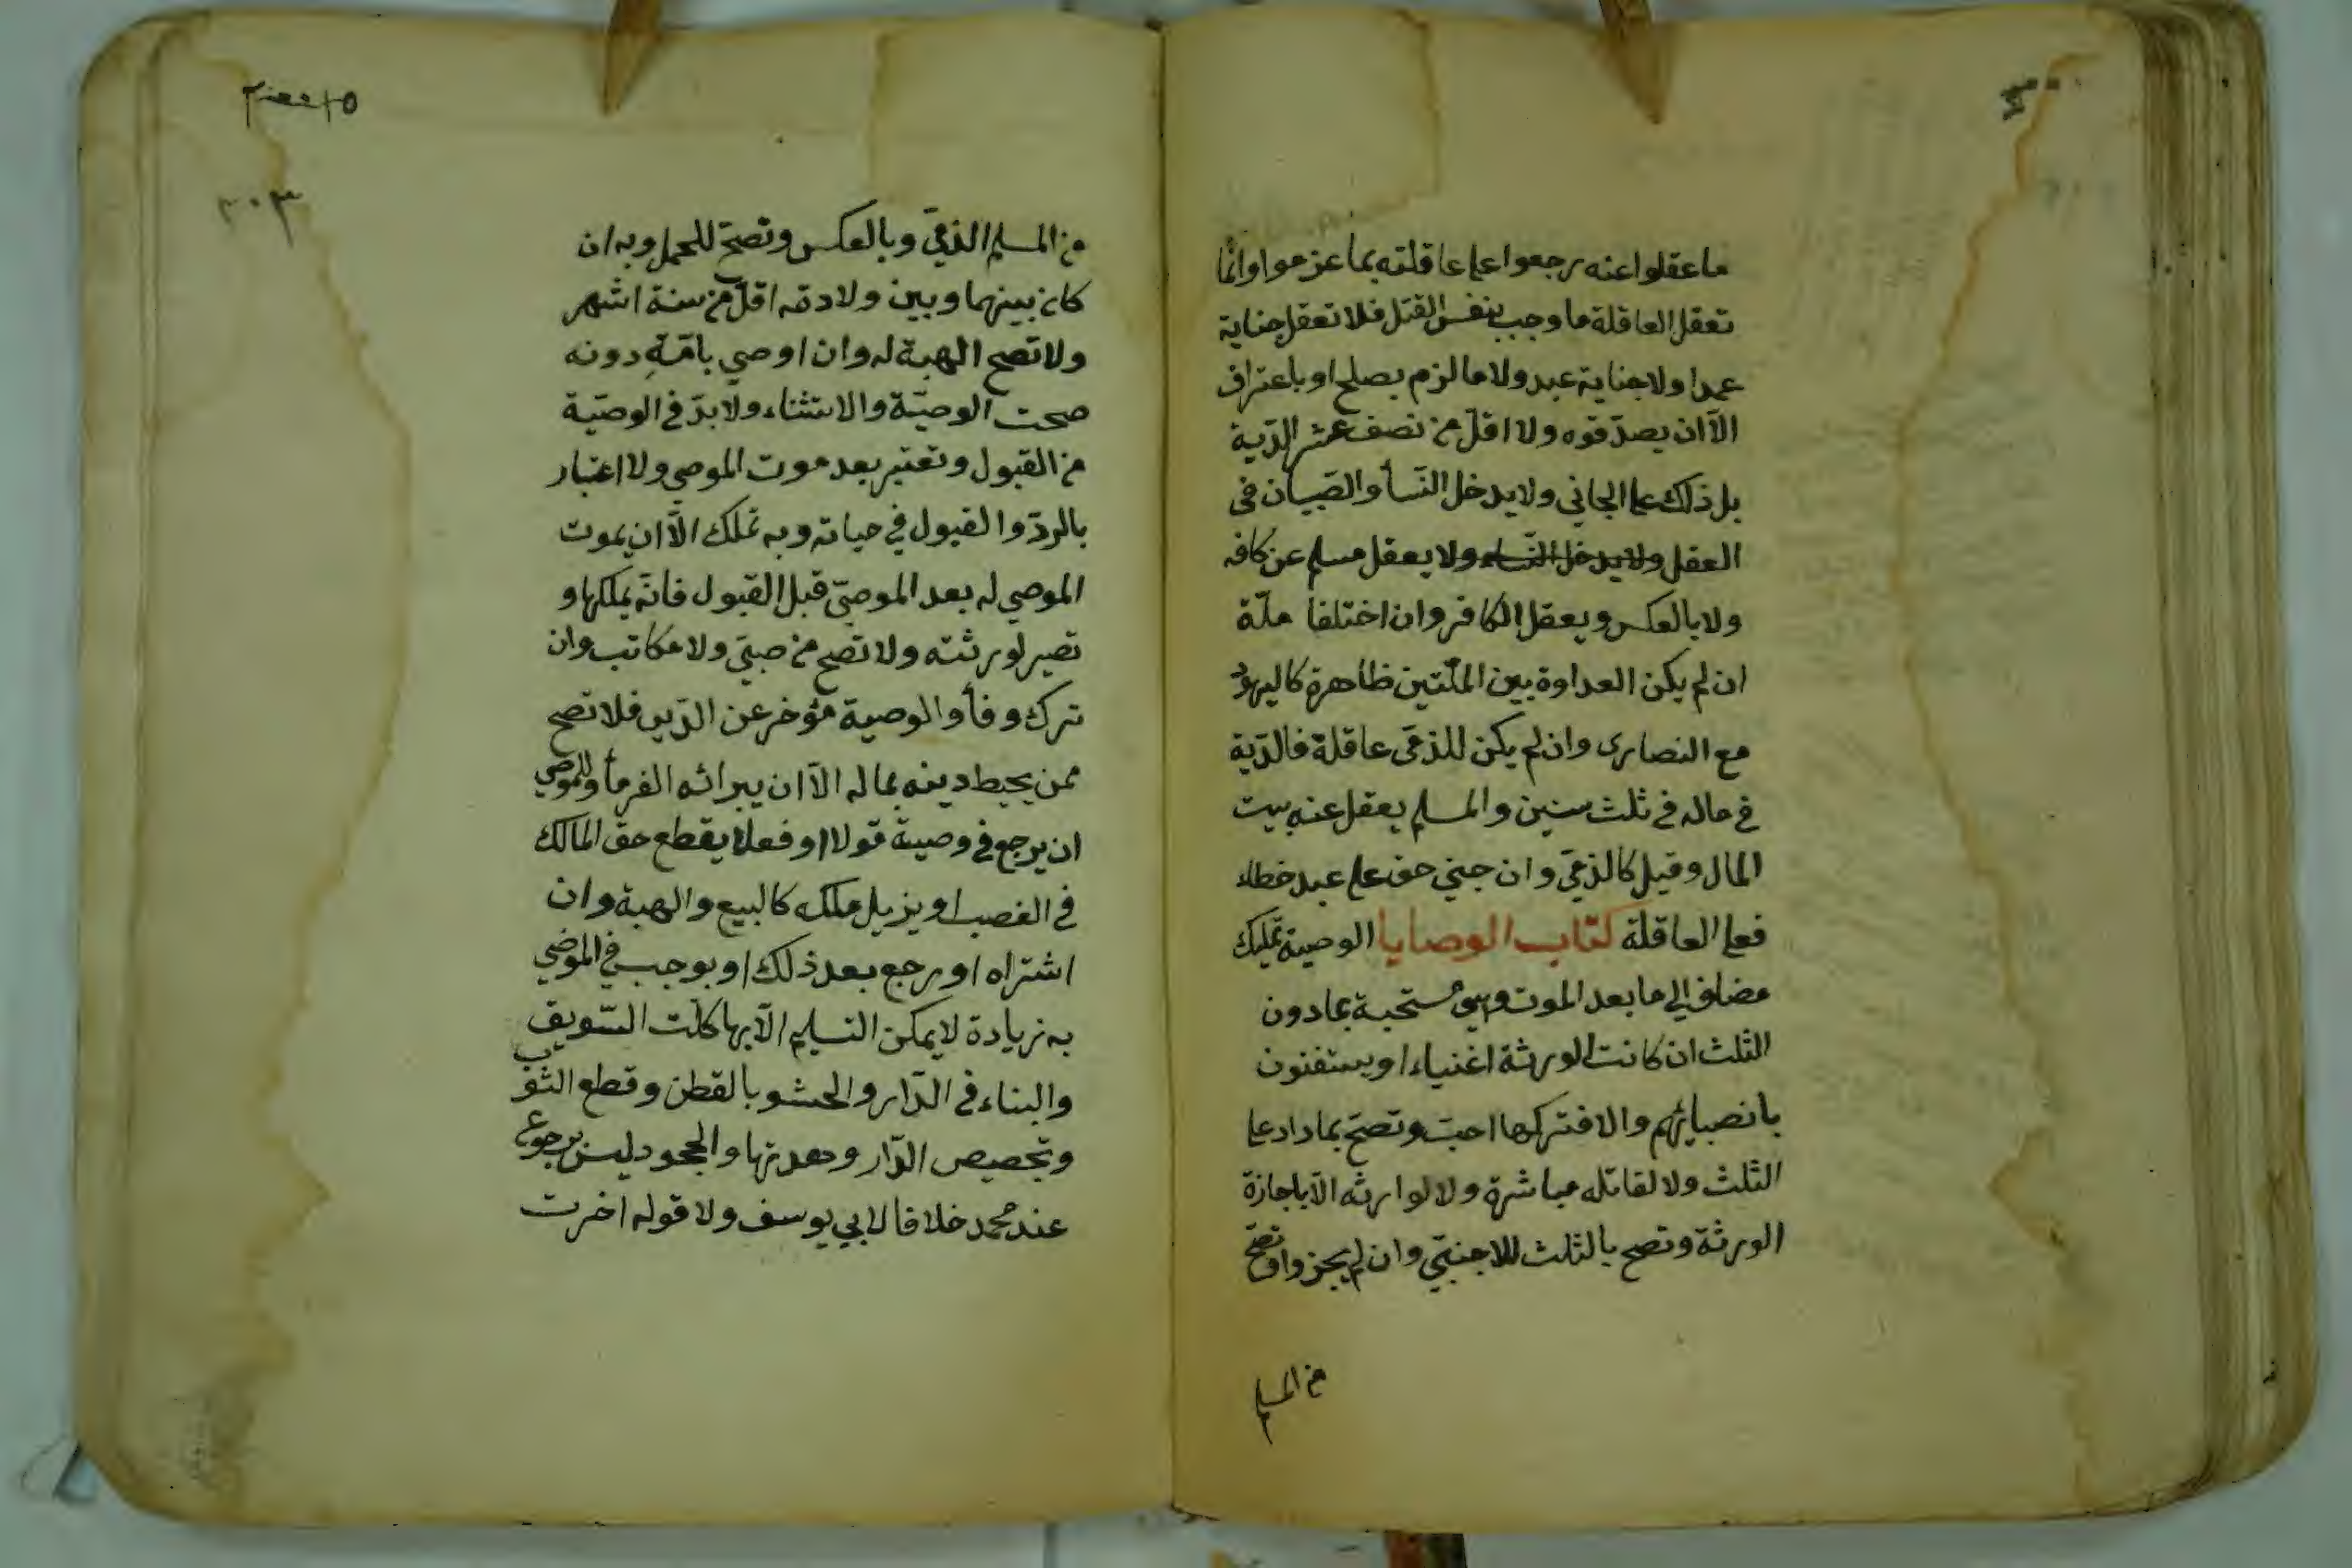 ما عقلوا عنه رجعوا علي عاقلته بما غرموا وانّما
تعقل العاقلة ما وجب بنفس القتل فلا تعقل جناية
عمدا ولا جناية عبد ولا ما لزم بصلح او باعتراف
الّا ان يصدّقوه ولا اقلّ من نصف عشر الدّية
بل ذلك على الجاني ولا يدخل النّسأ والصّبيان في
العقل ولا يدخل النّساء ولا يعقل مسلم عن كافر
ولا بالعكس ويعقل الكافر وان اختلفا ملّة
ان لم يكن العداوة بين الملّتين ظاهرة كاليهود
مع النصارى وان لم يكن للذمّى عاقلة فالدّية
في ماله في ثلث سنين والمسلم يعقل عنه بيت
المال وقيل كالذمّي وان جني حر على عبد خطاء
فعلى العاقلة كتاب الوصايا الوصية تمليك
مضاف الي ما بعد الموت وهي مستحبة بما دون
الثلث ان كانت الورثة اغنياء او يستغنون
بانصبائهم والا فتركها احبّ وتصحّ بما زاد على
الثلث ولا لقاتله مباشرة ولا لوارثه الّا باجازة
الورثة وتصح بالثلث للاجنبّي وان لم يجزوا وتصحّ
من المسلم
٢٠٣
من المسلم الذمّي وبالعكس وتصحّ للحمل وبه ان
كان بينهما وبين ولادته اقلّ من ستة اشهر
ولا تصح الهبة له وان اوصي بامّةٍ دونه
صحت الوصيّة والاستثناء ولا بدّ في الوصيّة
من القبول وتعتبر بعد موت الموصي ولا اعتبار
بالردّ والقبول في حياته وبه تملك الّا ان يموت
الموصي له بعد الموصيّ قبل القبول فانّه يملكها و
تصير لورثته ولا تصح من صبيّ ولا مكاتب وان
ترك وفأ والوصية مؤخر عن الدّين فلا تصح
ممن يحيط دينه بماله الّا ان يبرائه الغرمأ وللموصي
ان يرجع في وصية قولا او فعلا يقطع حق المالك
في الغصب او يزيل ملكه كالبيع والهبة وان
اشتراه او رجع بعد ذلك او يوجب في الموصي
به زيادة لا يمكن التسليم الّا بها كلّت السّويق
والبناء في الدّار والحشو بالقطن وقطع الثوب
وتجصيص الدّار وهدمها والجحود ليس برجوع
عند محمد خلافا لابي يوسف ولا قوله اخرت